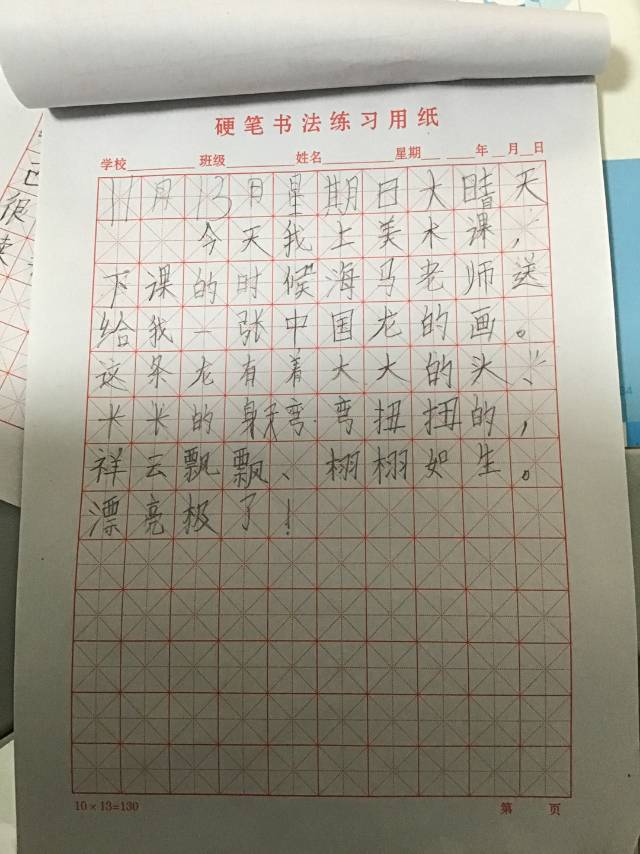 硬笔书法练习用纸
学校 班级 姓名 星期 年 月 日
11月13日星期日大晴天
今天我上美术课，
下课的时候海马老师送
给我一张中国龙的画。
这条龙有着大大的头、
长长的身夭弯弯扭扭的，
祥云飘飘、栩栩如生。
漂亮极了！
10×13=130
第 页